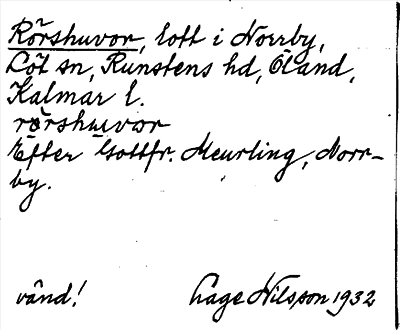 Rörshuvor, lott i Norrby,
Löt sn, Runstens hd, Öland,
Kalmar l.
rörshuvor
Efter Gottfr. Meurling, Norr-
by.
vänd! Åage Nilsson 1932